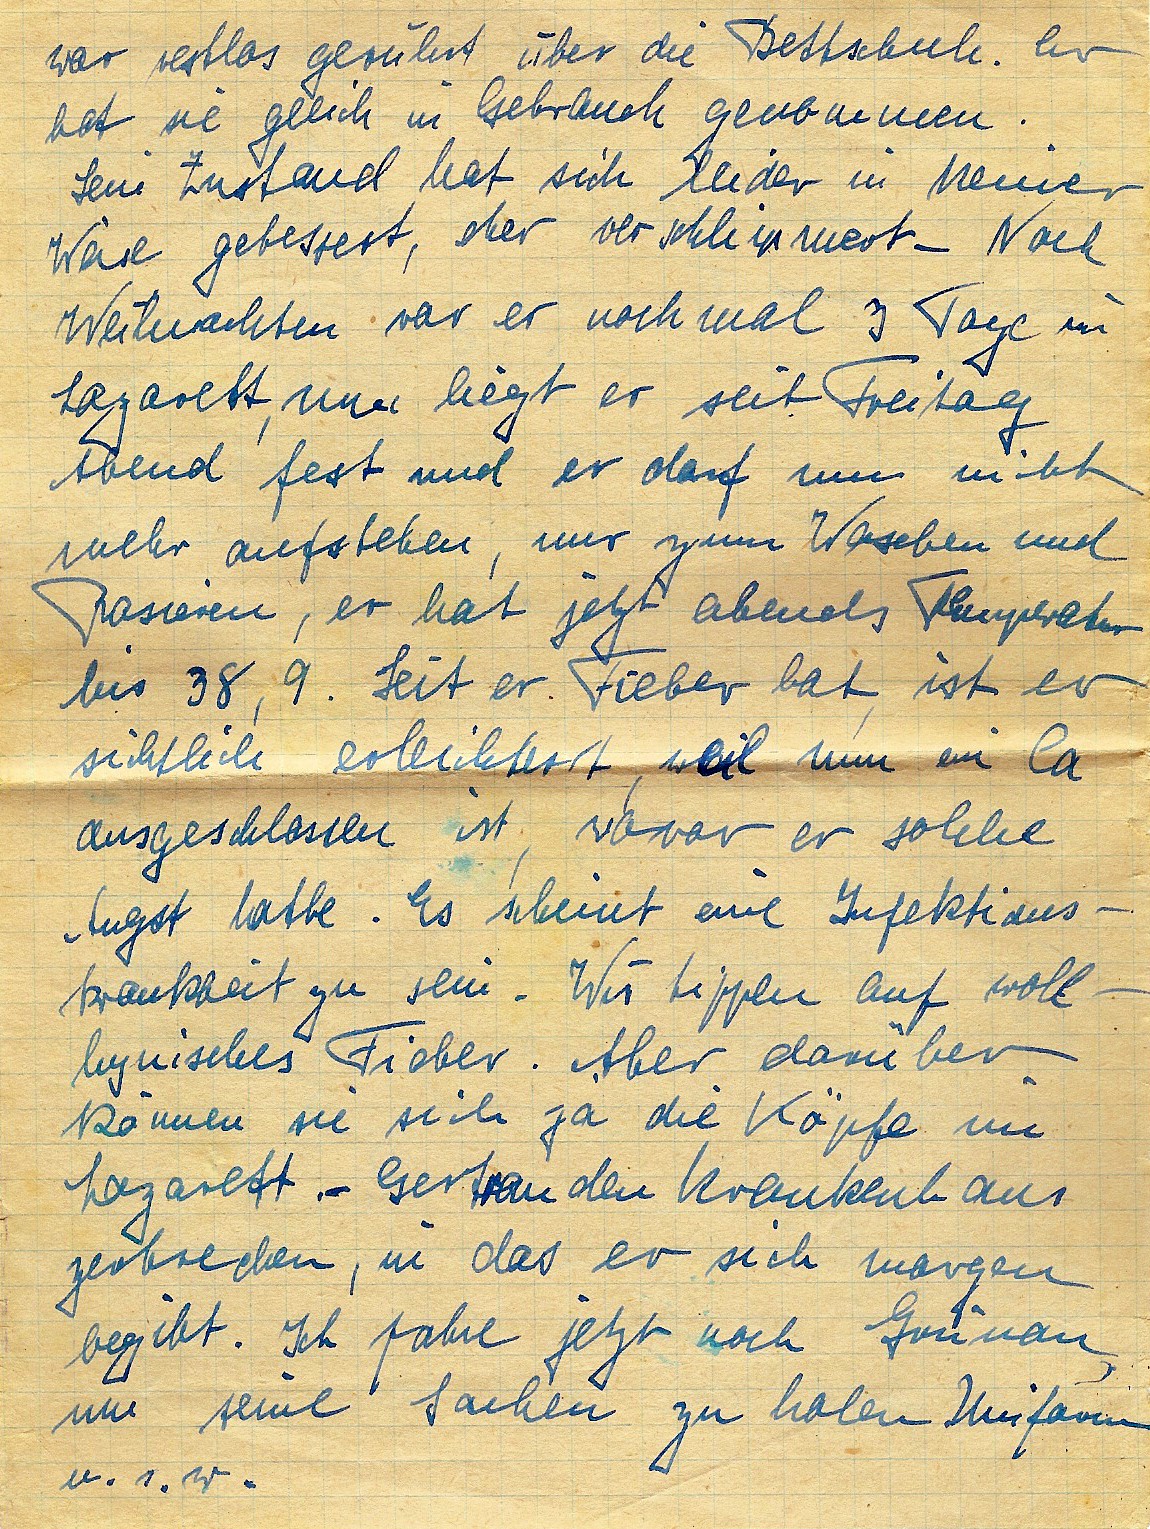 war restlos gerührt über die Bettschuh. Er
hat sie gleich in Gebrauch genommen.
Sein Zustand hat sich leider in keiner
Weise gebessert, eher verschlimmert – Nach
Weihnachten war er noch mal 3 Tage im
Lazarett, nun liegt er seit Freitag
Abend fest und er darf nun nicht
mehr aufstehen, nur zum Waschen und
Rasieren, er hat jetzt abends Temperatur
bis 38,9. Seit er Fieber hat, ist er
sichtlich erleichtert, weil nun ein Ca
ausgeschlossen ist, wovor er solche
Angst hatte. Es scheint eine Infektions-
krankheit zu sein. Wir tippen auf woll-
hynisches Fieber. Aber darüber
können sie sich ja die Köpfe im
Lazarett – Gertrauden Krankenhaus
zerbrechen, in das er sich morgen
begibt. Ich fahre jetzt noch Grünau,
um seine Sachen zu holen Uniform
u. s. w.